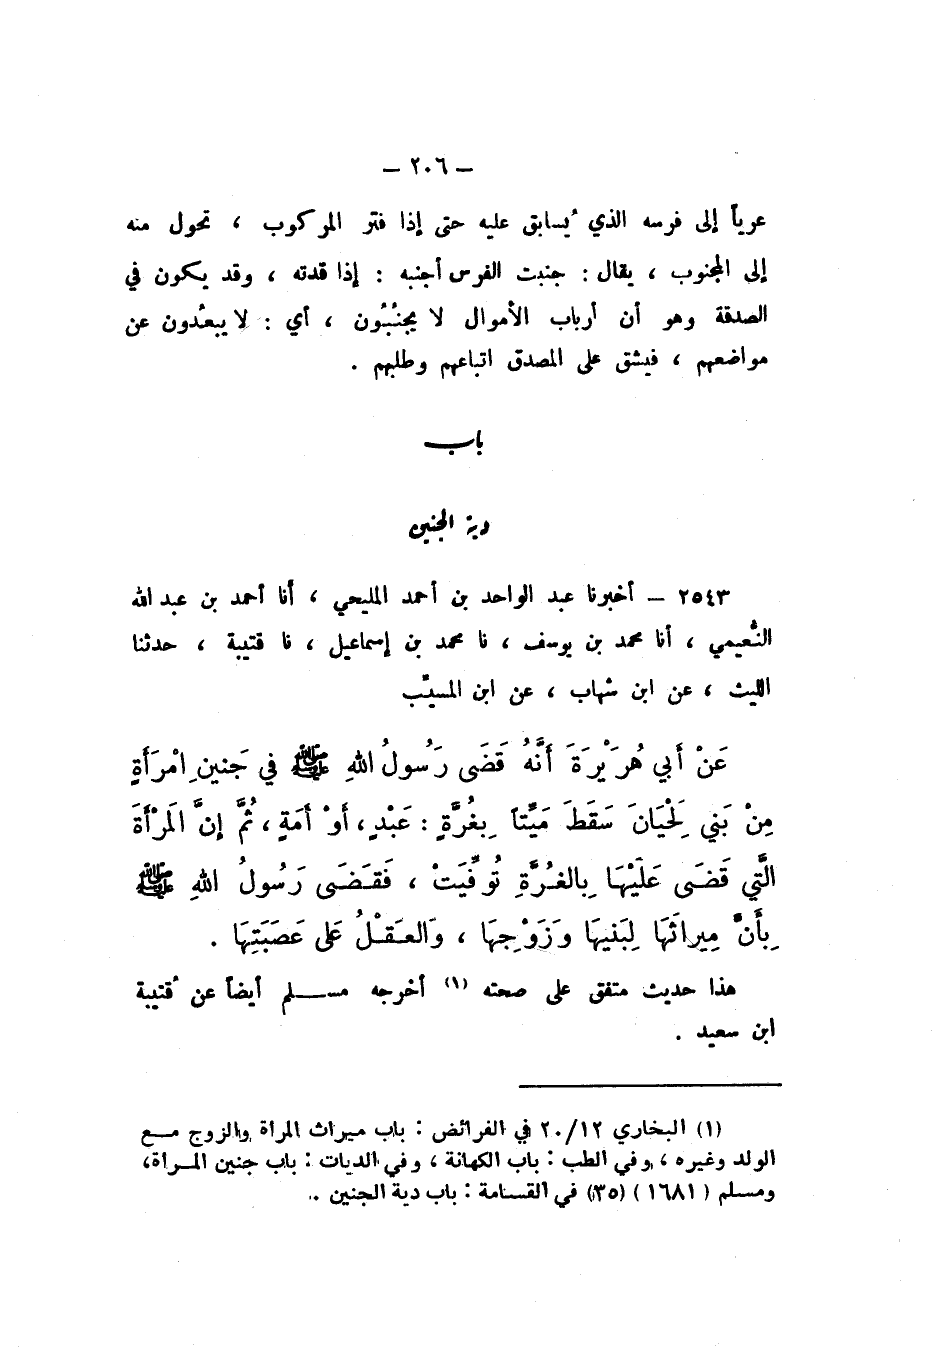 – ٢٠٦ –
عرياً إلى فرسه الذي يُسابق عليه حتى إذا فتر المركوب ، تحول منه
إلى المجنوب ، يقال : جنبت الفرس أجنبه : إذا قدته ، وقد يكون في
الصدقة وهو أن أرباب الأموال لا يجنُبُون ، أي : لا يبعُدون عن
مواضعهم ، فيشق على المصدق اتباعهم وطلبهم .
باب
دية الجنين
٢٥٤٣ – أخبرنا عبد الواحد بن أحمد المليحي ، أنا أحمد بن عبد الله
النُّعيمي ، أنا محمد بن يوسف ، نا محمد بن إسماعيل ، نا قتيبة ، حدثنا
الليث ، عن ابن شهاب ، عن ابن المسيَّب
عَنْ أَبِي هُرَيْرَةَ أَنَّهُ قَضَى رَسُولُ اللهِ ﷺ فِي جَنِينِ امْرَأَةٍ
مِنْ بَنِي لَحْيَانَ سَقَطَ مَيِّتاً بِغُرَّةٍ : عَبْدٍ ، أَوْ أَمَةٍ ، ثُمَّ إِنَّ المَرْأَةَ
الَّتِي قَضَى عَلَيْهَا بِالغُرَّةِ تُوُفِّيَتْ ، فَقَضَى رَسُولُ اللهِ ﷺ
بِأَنَّ مِيرَاثَهَا لِبَنِيهَا وَزَوْجِهَا ، وَالعَقْلُ عَلَى عَصَبَتِهَا .
هذا حديث متفق على صحته (١) أخرجه مسلم أيضاً عن قُتيبة
ابن سعيد .
(١) البخاري ٢٠/١٢ في الفرائض : باب ميراث المرأة والزوج مع
الولد وغيره ، وفي الطب : باب الكهانة ، وفي الديات : باب جنين المرأة،
ومسلم ( ١٦٨١ ) (٣٥) في القسامة : باب دية الجنين .